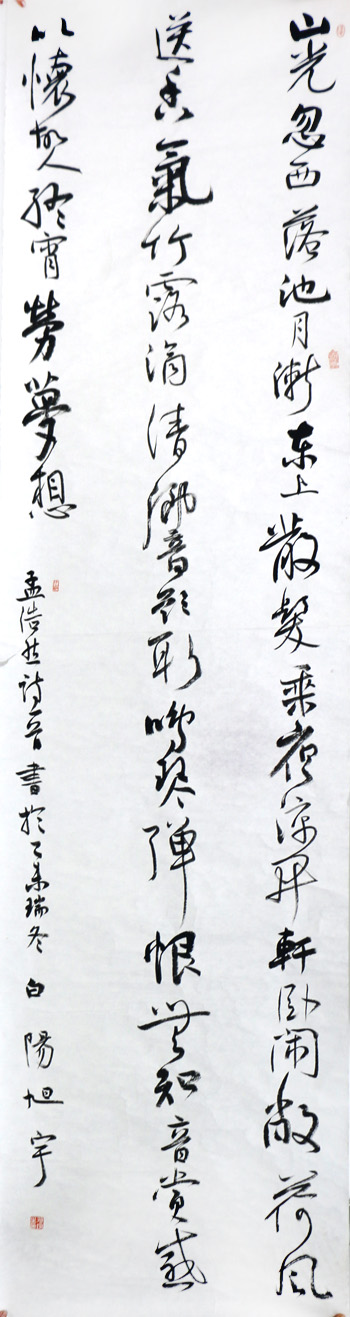 山光忽西落池月漸東上散髮乘夜涼開軒臥閑敞荷風
送香氣竹露滴清響欲取鳴琴彈恨無知音賞感
此懷故人終宵勞夢想
孟浩然詩一首書於乙未瑞冬白陽旭宇